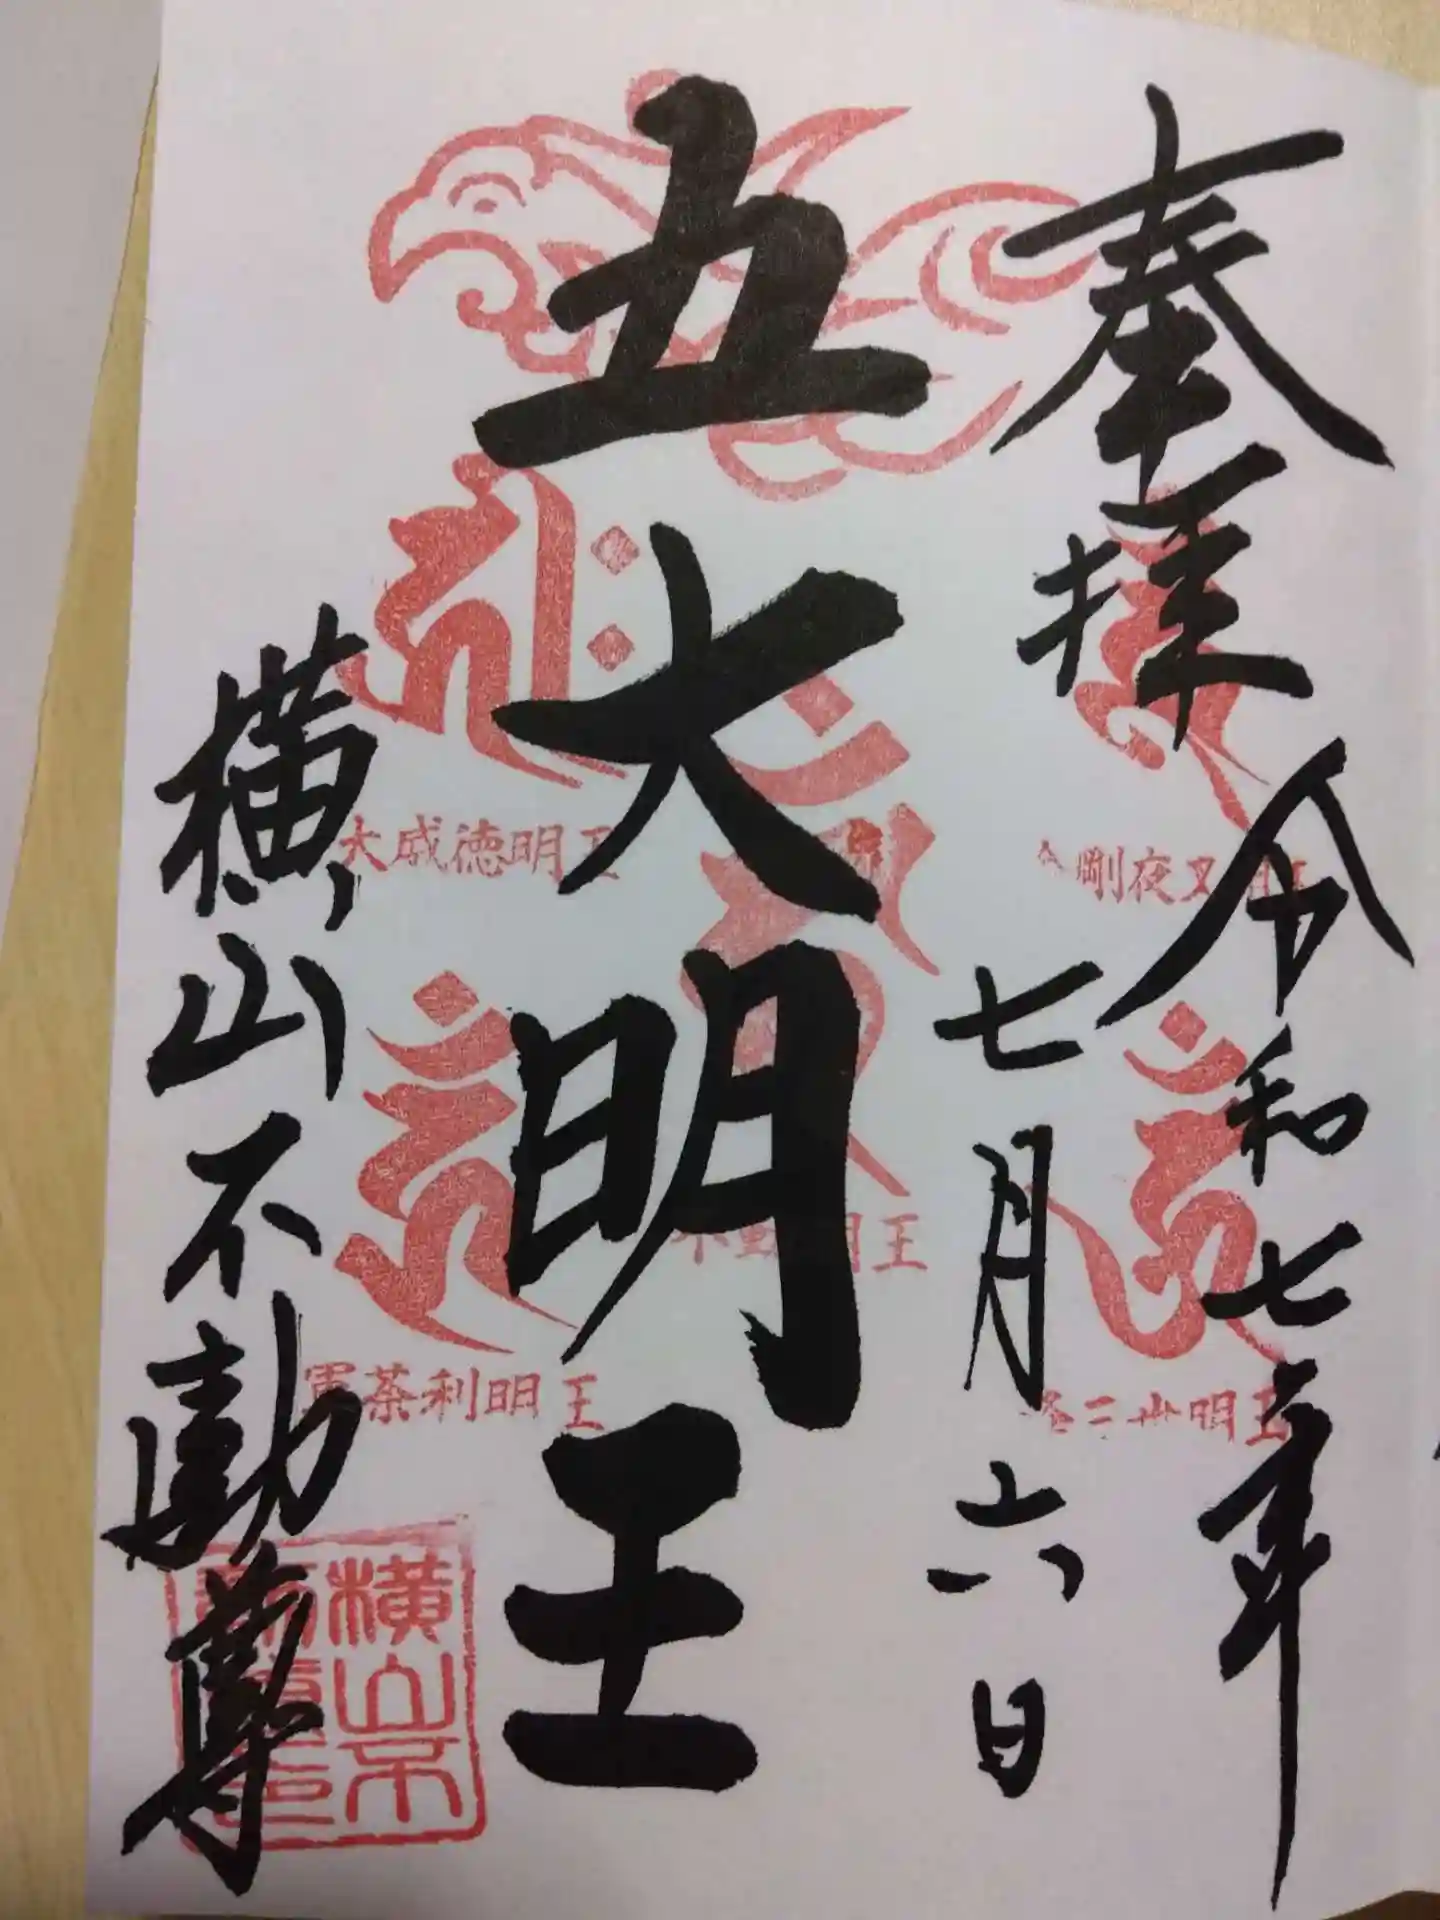 奉拝
令和七年
七月六日
五大明王
横山不動尊
大威徳明王
金剛夜叉明王
不動明王
軍荼利明王
降三世明王
横山不